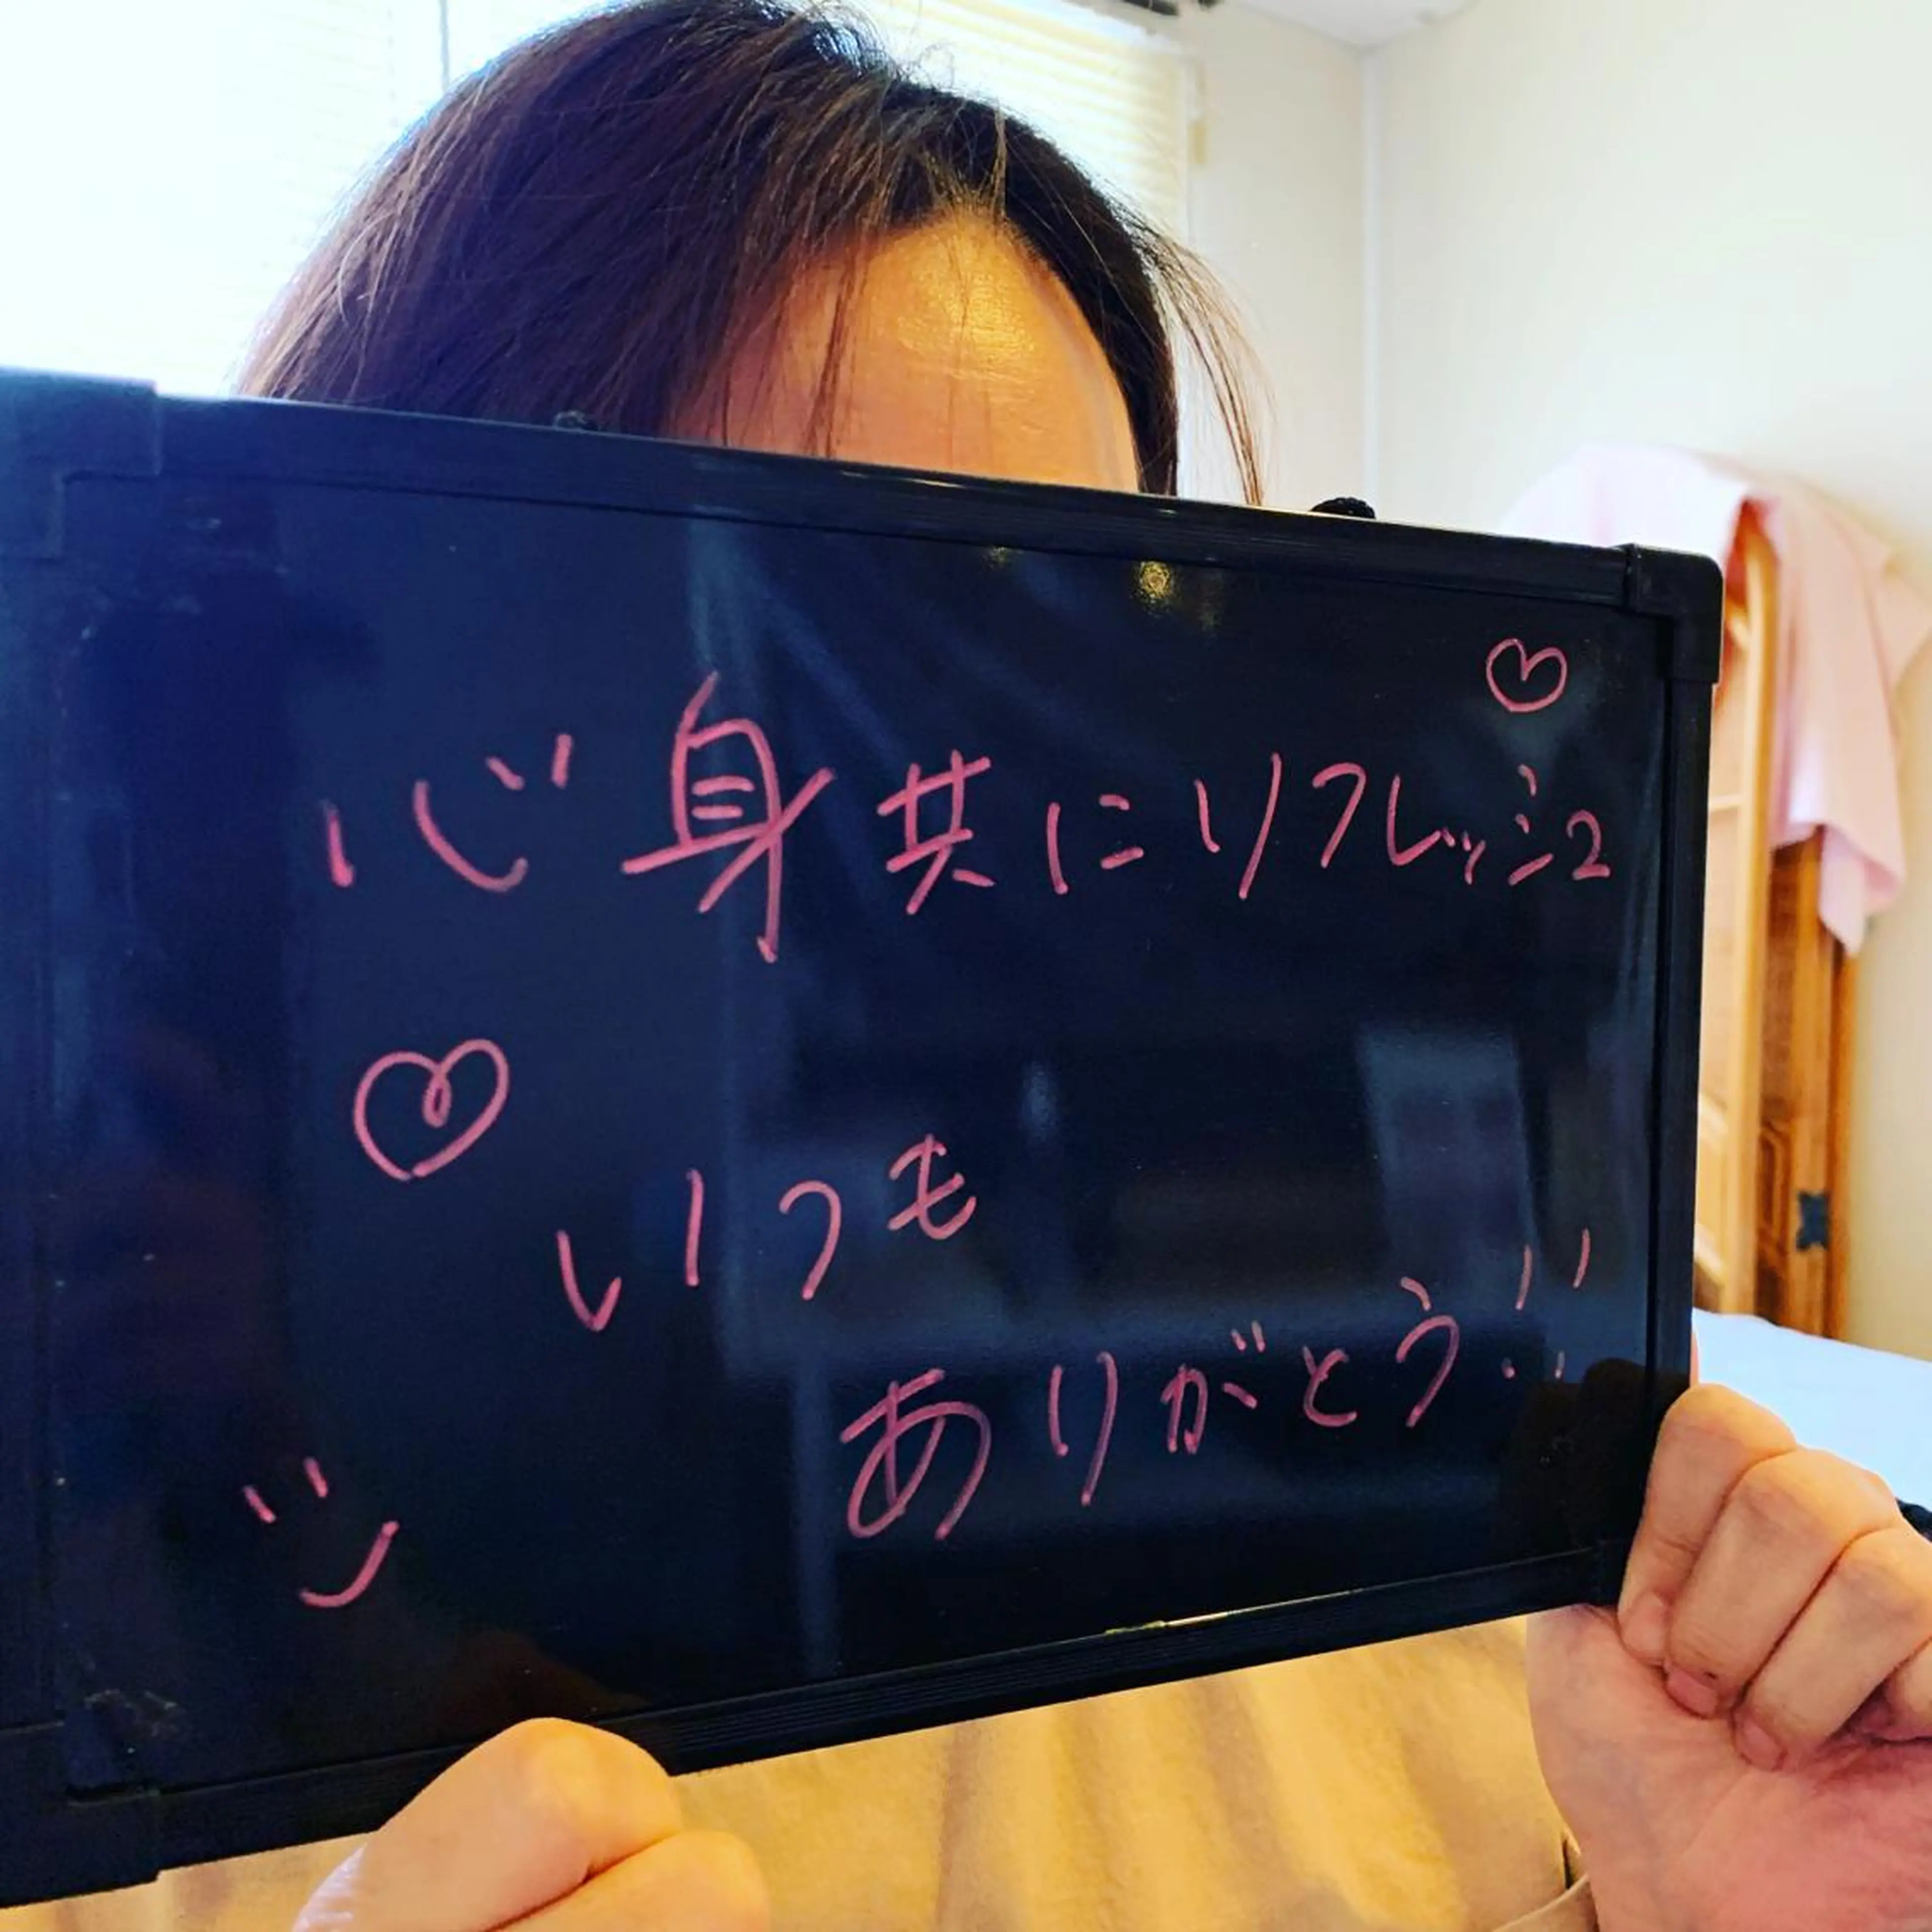 心身共にリフレッシュ♡
♡
いつも
ありがとう!!